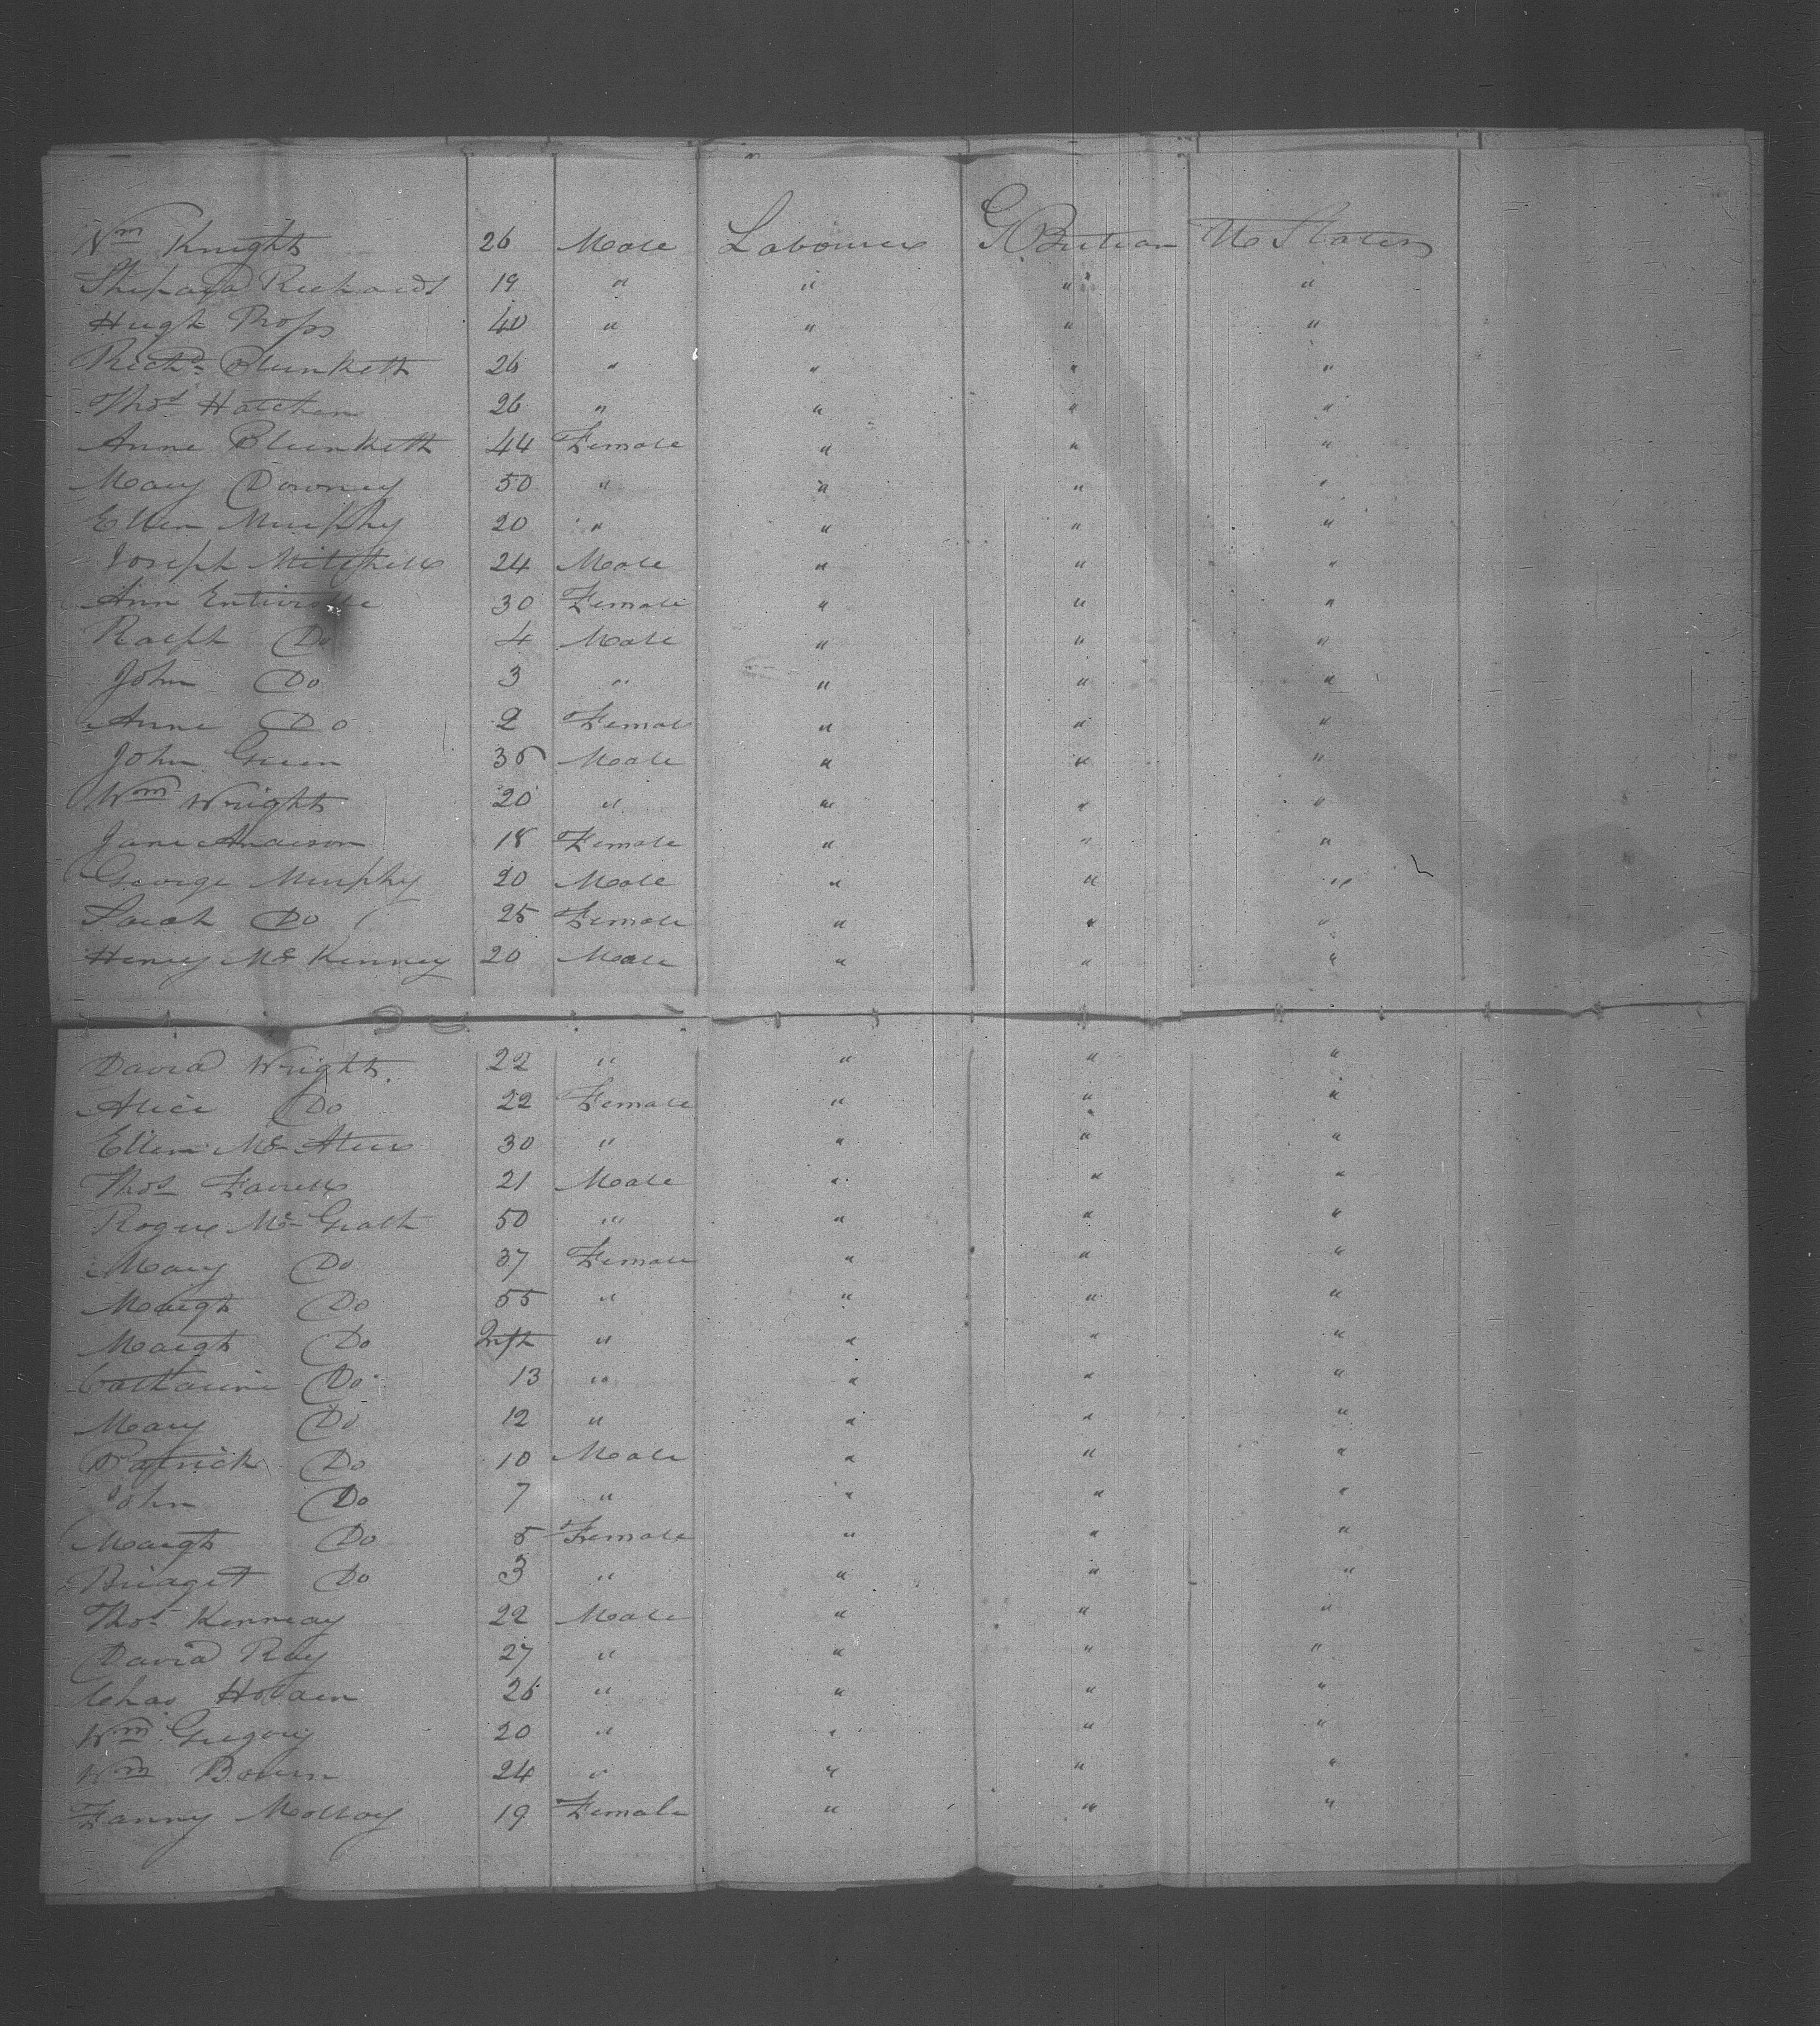 Wm Knight 26 Male Labourer G. Britian U States
Shepard Richards 19 " " " "
Hugh Props 40 " " " "
Richd Plunkett 26 " " " "
Thos Hatchen 26 " " " "
Anne Plunkett 44 Female " " "
Mary Downey 50 " " " "
Ellen Murphy 20 " " " "
Joseph Mitchell 24 Male " " "
Ann 30 Female " " "
Ralph Do 4 Male " " "
John Do 3 " " " "
Anne Do 2 Female " " "
John Green 36 Male " " "
Wm Wright 20 " " " "
Jane Anderson 18 Female " " "
George Murphy 20 Male " " "
Sarah Do 25 Female " " "
Henry Mc Kenney 20 Male " " "
David Wright. 22 " " " "
Alice Do 22 Female " " "
Ellen Mc Ateer 30 " " " "
Thos Farrell 21 Male " " "
Roger Mc Grath 50 " " " "
Mary Do 37 Female " " "
Margt Do 55 " " " "
Margt Do Inft " " " "
Catharine Do 13 " " " "
Mary Do 12 " " " "
Patrick Do 10 Male " " "
John Do 7 " " " "
Margt Do 5 Female " " "
Bridget Do 3 " " " "
Thos Kennedy 22 Male " " "
David Ray 27 " " " "
Chas Holden 26 " " " "
Wm Gregory 20 " " " "
Wm Bowen 24 " " " "
Fanny Molloy 19 Female " " "